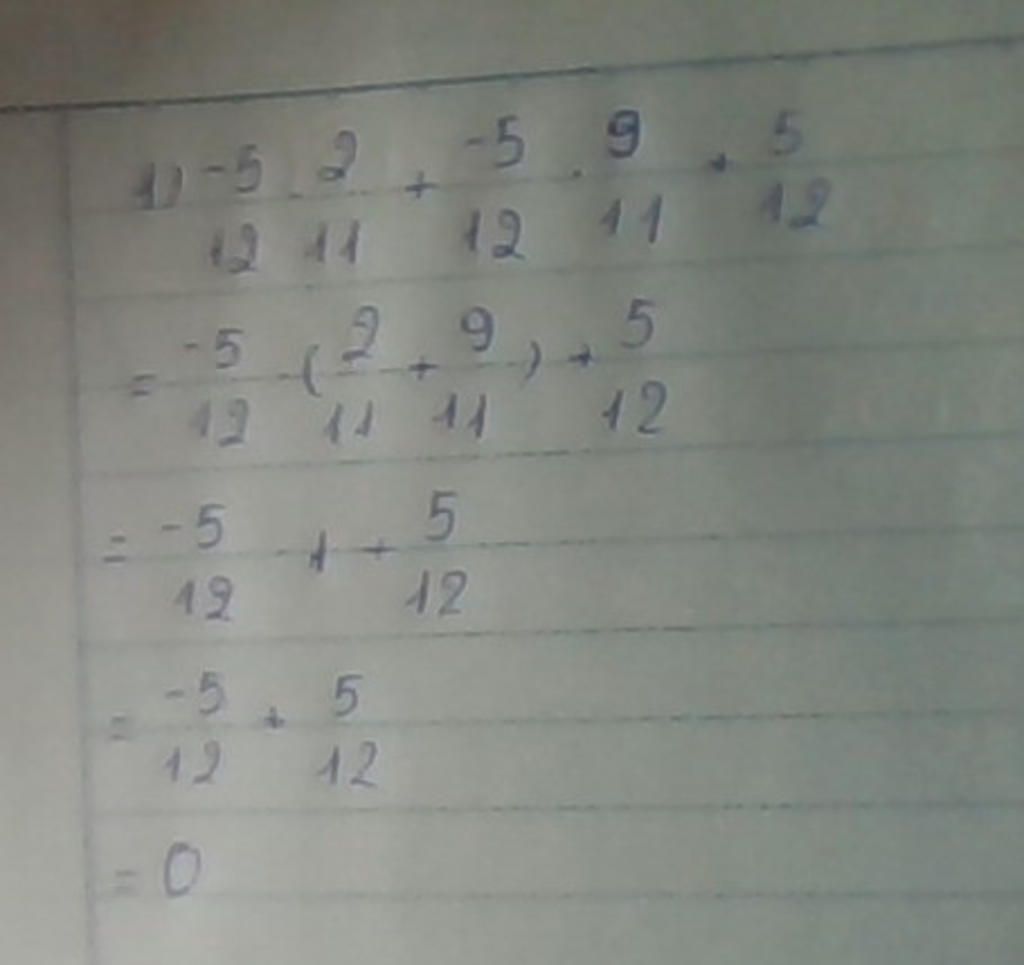 1) -5/12 . 2/11 + -5/12 . 9/11 + 5/12
= -5/12 . (2/11 + 9/11) + 5/12
= -5/12 . 1 + 5/12
= -5/12 + 5/12
= 0